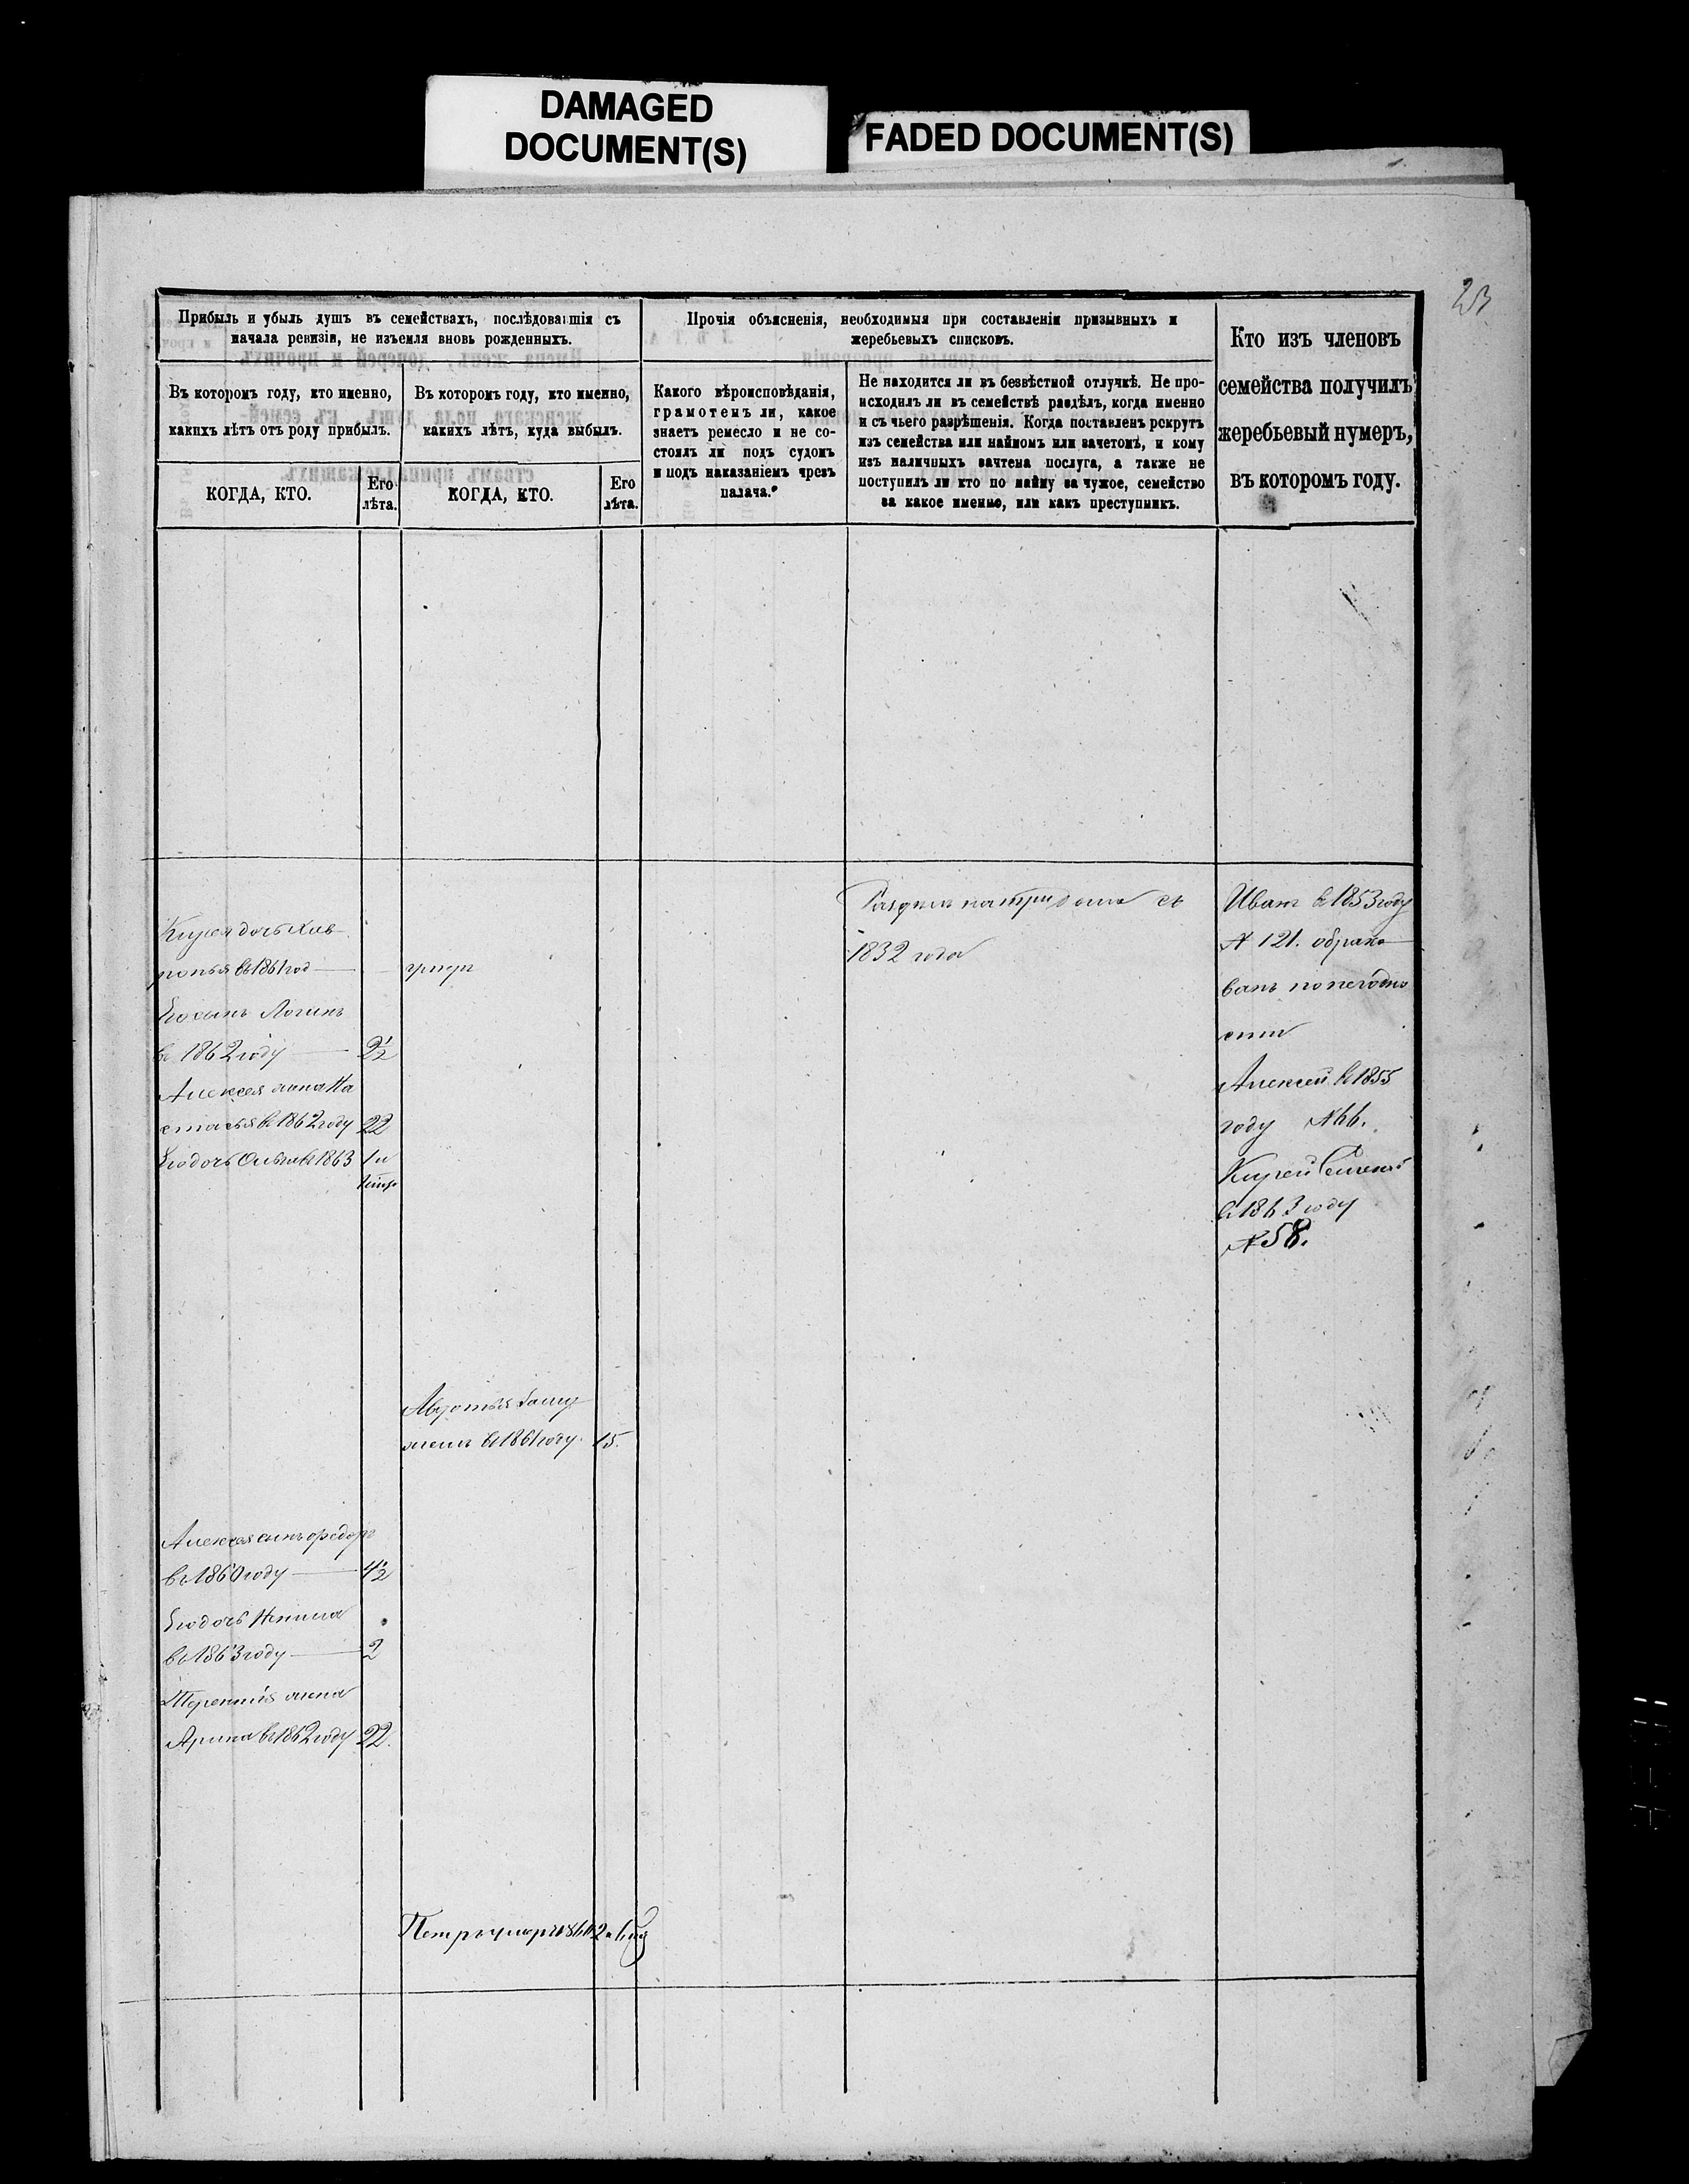 DAMAGED
DOCUMENT(S)
FADED DOCUMENT(S)
23
Прибыль и убыль душъ въ семействахъ, послѣдовавшія съ
начала ревизіи, не изъемля вновь рожденныхъ.
Въ которомъ году, кто именно,
какихъ лѣтъ отъ роду прибылъ.
КОГДА, КТО.
Его
лѣта.
Въ которомъ году, кто именно,
какихъ лѣтъ, куда выбылъ.
КОГДА, КТО.
Его
лѣта.
Прочія объясненія, необходимыя при составленіи призывныхъ и
жеребьевыхъ списковъ.
Какого вѣроисповѣданія,
грамотенъ ли, какое
знаетъ ремесло и не со-
стоялъ ли подъ судомъ
и подъ наказаніемъ чрезъ
палача.
Не находится ли въ безвѣстной отлучкѣ. Не про-
исходилъ ли въ семействѣ раздѣлъ, когда именно
и съ чьего разрѣшенія. Когда поставленъ рекрутъ
изъ семейства или наймомъ или зачетомъ, и кому
изъ наличныхъ зачтена послуга, а также не
поступилъ ли кто по найму за чужое, семейство
за какое именно, или какъ преступникъ.
Кто изъ членовъ
семейства получилъ
жеребьевый нумеръ,
въ которомъ году.
дочь Хив-
ронья въ 1861 год
Его сынъ Логинъ
въ 1862 году 2½
Алексея жена На
стасья въ 1862 году 22
Его дочь въ 1863 1 и
умеръ
Авдотья заму
жемъ въ 1861 году. 15.
Алексея сынъ Федоръ
въ 1860 году 4½
Его дочь
въ 1863 году 2
Терентия жена
Арина въ 1862 году 22.
Петръ умеръ
Разделъ на три дома съ
1832 года
Иванъ въ 1853 году
№ 121. обрако
ванъ по негодно
сти
Алексей въ 1855
году № 66.
въ 1863 году
№ 58.